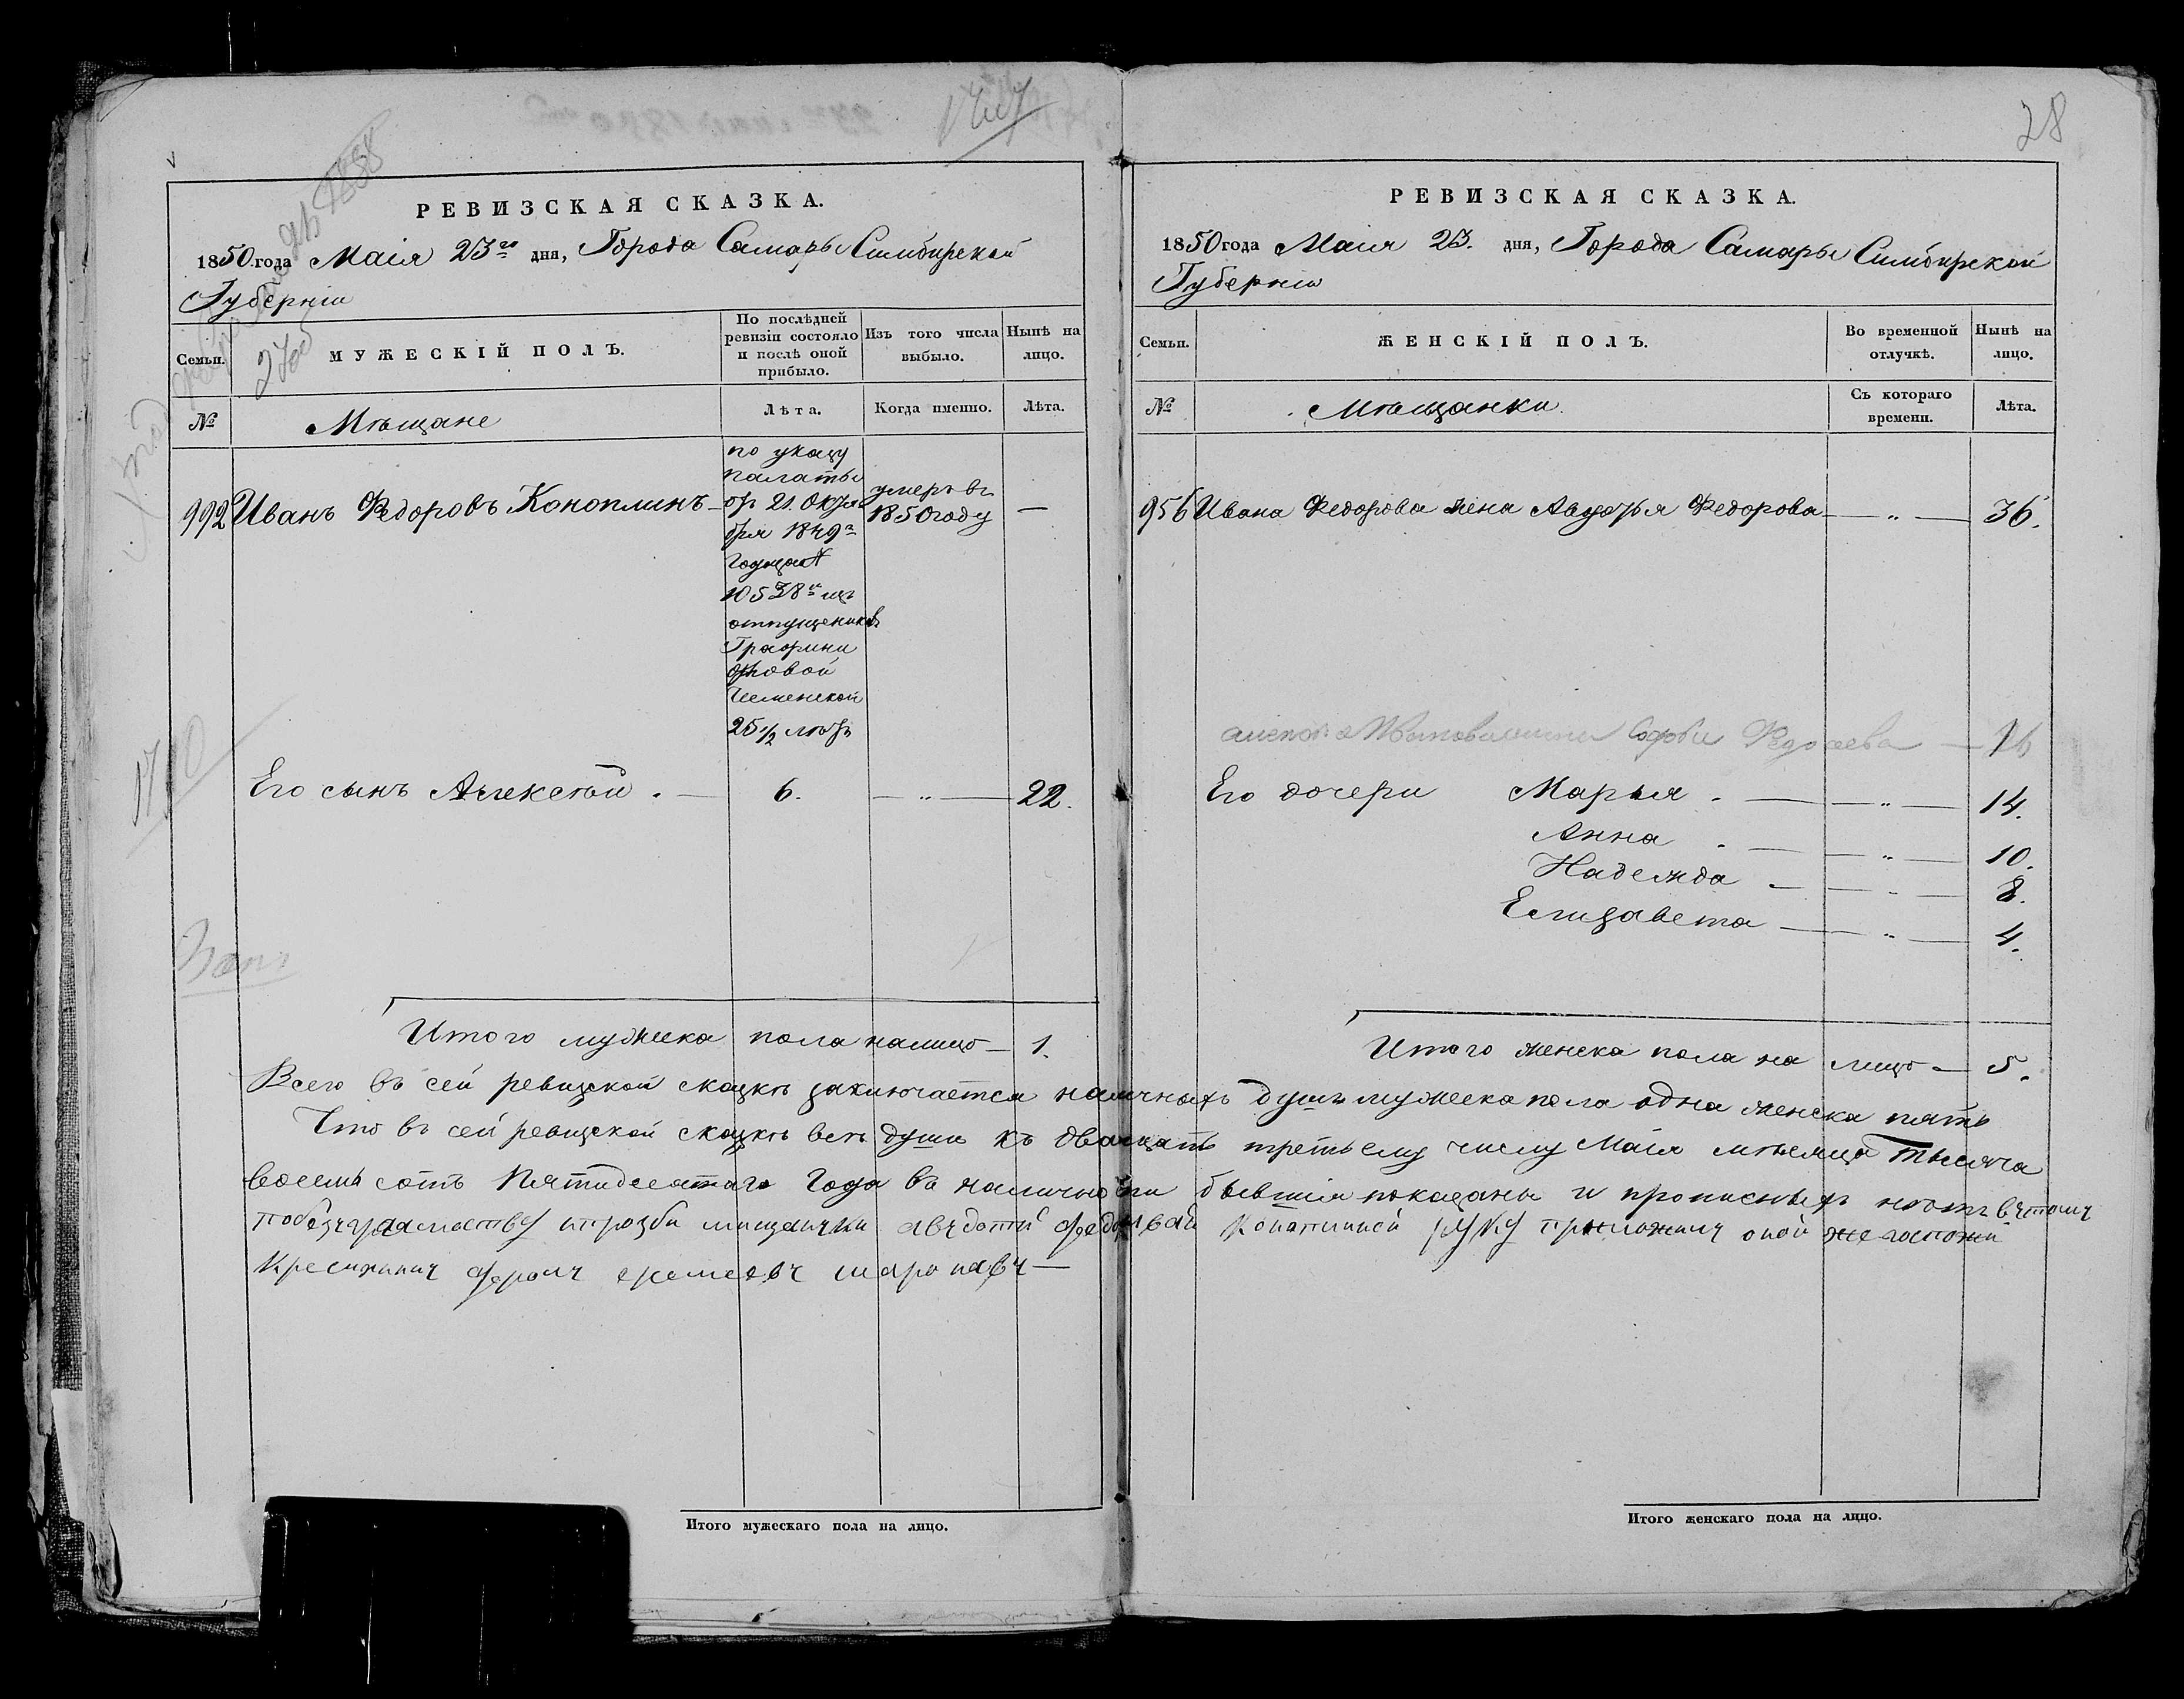 28
РЕВИЗСКАЯ СКАЗКА.
1850 года Маія 23го дня, Города Самары Симбирской
Губерніи
Семьи.
МУЖЕСКІЙ ПОЛЪ.
По послѣдней
ревизіи состояло
и послѣ оной
прибыло.
Изъ того числа
выбыло.
Нынѣ на
лицо.
№
Мѣщане
Лѣта.
Когда именно.
Лѣта.
992 Иванъ Федоровъ Коноплинъ
по указу
палаты
отъ 21. Октя
бря 1849го
года
10538 изъ
отпущениковъ
Графини
Орловой
Чесменской
25 1/2 лѣтъ
умеръ въ
1850 году
—
1710
Его сынъ Алексѣй . — 6. — „ — 22.
Итого мужеска пола налицо — 1.
РЕВИЗСКАЯ СКАЗКА.
1850 года Маія 23. дня, Города Самары Симбирской
Губерніи
Семьи.
ЖЕНСКІЙ ПОЛЪ.
Во временной
отлучкѣ.
Нынѣ на
лицо.
№
Мѣщанки.
Съ котораго
времени.
Лѣта.
956 Ивана Федорова жена Авдотья Федорова — „ — 36.
Его дочери Марья . — „ — 14.
Анна . — „ — 10.
Надежда — „ — 8.
Елизавета — „ — 4.
Итого женска пола на лицо — 5.
Всего въ сей ревизской сказкѣ заключается наличныхъ душъ мужеска пола одна женска пять
Что въ сей ревизской сказкѣ всѣ души къ двадцать третьему числу Маія мѣсяца тысяча
восемь сотъ Пятидесятаго Года въ наличности бывшія показаны и прописныхъ нѣтъ вчтомч
мищанки авдоти федоровай руку приложилч оной же госпожи
Итого мужескаго пола на лицо.
Итого женскаго пола на лицо.